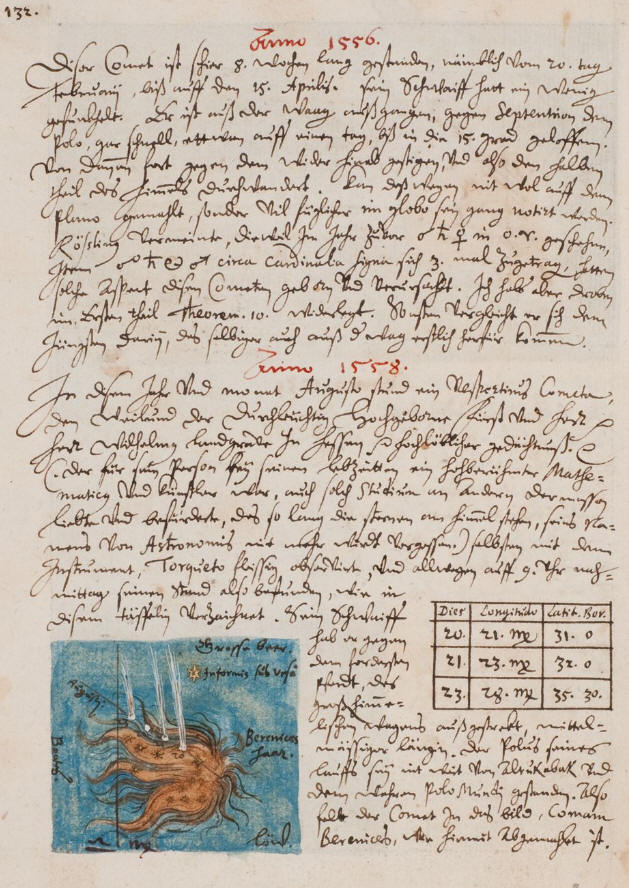 132.
Anno 1556.
Diser Comet ist schier 8. wochen lang gestanden, nämblich vom 20. tag
Februarij, biß auff den 15. Aprilis. sein Schwaiff hatt ein wenig
gefunkhelt. Er ist auß der Waag außgangen, gegen Septentrion dem
Polo, gar schnell, ettwan auff einen tag, biß in die 15. grad geloffen.
Von dannen fort gegen dem Wider hinab gestigen, Vnd also den halben
theil des himmels durchwandert. Kan deßwegen nit wol auff dem
Plano gemahlt, sonder Vil füglicher im globo sein gang notirt werden.
Rößling Vermeinte, dieweil Im Jahr zuvor ☌ ♄ ♀ in geschehen,
Item ☍ ♄ ♂ circa Cardinalia signa sich 3. mal zugetragen, hetten
solche Aspect disen Cometen geborn Vnd Verursacht. Ich hab aber droben
im Ersten theil Theorem. 10. widerlegt. Sonsten Vergleicht er sich dem
Jüngsten darinn, das selbiger auch auß der waag erstlich herfür kommen.
Anno 1558.
In disem Jahr Vnd monat Augusto stund ein Vespertinus Cometa,
den Weilund der Durchleuchtig Hochgeborne Fürst Vnd Herr
Herr Wilhelm Landgrave In Hessen hochlöblicher gedächtnuß.
(der für sein Person bey seinen lebzeitten ein hochberümbter Mathe-
maticus Vnd künstler war, auch solch Studium an Andern dermassen
liebte Vnd befürderte, das so lang die sternen am himmel stehen, seins Na-
mens Von Astronomis nit mehr würdt Vergessen.) selbsten mit dem
Instrument, Torqueto fleissig observirte, Vnd allwegen auff 9. Vhr nach-
mittag seinen Stand also befunden, wie in
disem täffelin Verzaichnet. Sein Schwaiff
hab er gegen
dem fordersten
Pferdt, des
groß himme-
lischen wagens außgestrekt, mittel-
mässiger lengin. Der Polus seines
lauffs sey nit weit Von Alrukabah Vnd
dem wahren Polo Mundi gestanden. Also
felt der Comet In das bild, Comam
Berenices, wie hiemit Abgemahlet ist.
Dies Longitudo Latit. Bor.
20. 21. ♍ 31. 0
21. 23. ♍ 32. 0
23. 28. ♍ 35. 30.
Grosse beer.
Informis sub ursa
Augusti
Berenices
haar.
20
♎ ♍
Löw.